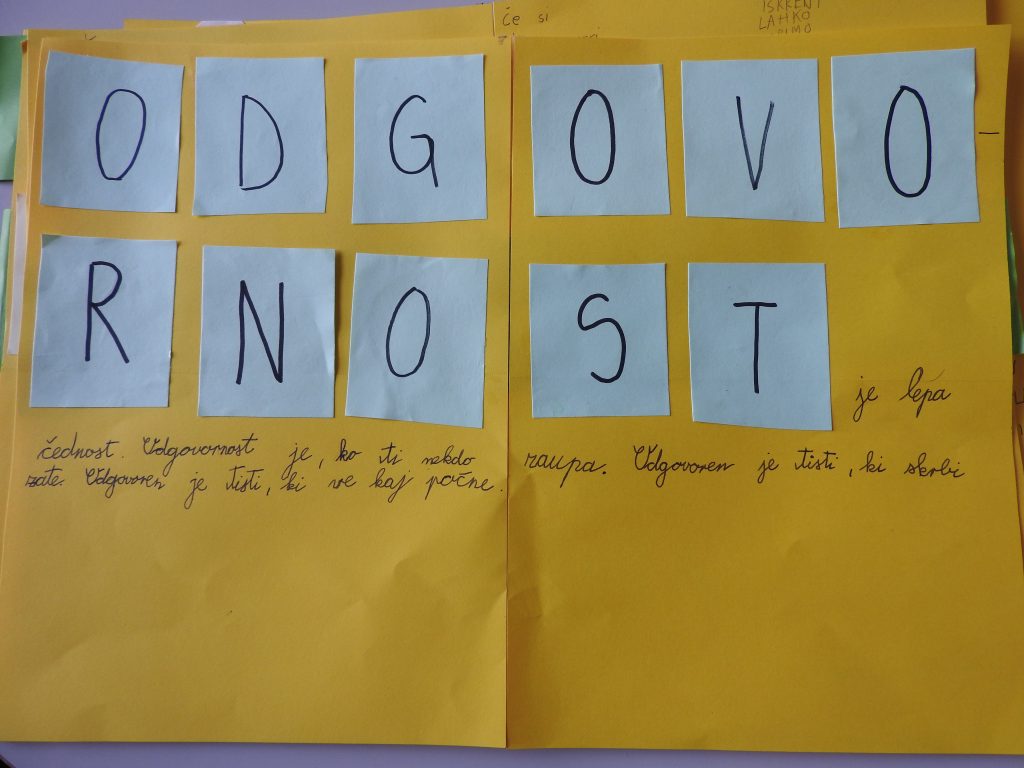 če si
ISKRENI
LAHKO
ODGOVO-
RNOST je lepa
čednost. Odgovornost je, ko ti nekdo zaupa. Odgovoren je tisti, ki skrbi
zate. Odgovoren je tisti, ki ve kaj počne.